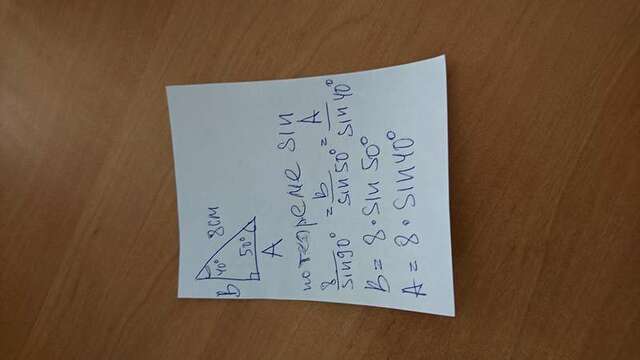 B 40° 8см
50°
A
по теореме sin
8/sin90° = B/sin50° = A/sin40°
B = 8 · sin 50°
A = 8 · sin40°